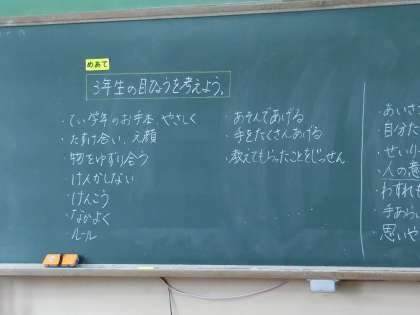 めあて
3年生の目ひょうを考えよう。
・てい学年のお手本、やさしく
・たすけ合い、え顔
・物をゆずり合う
・けんかしない
・けんこう
・なかよく
・ルール
・あそんであげる
・手をたくさんあげる
・教えてもらったことをじっせん
・あいさ
・自分た
・せいり
・人の意
・わすれも
・手あら
思いや